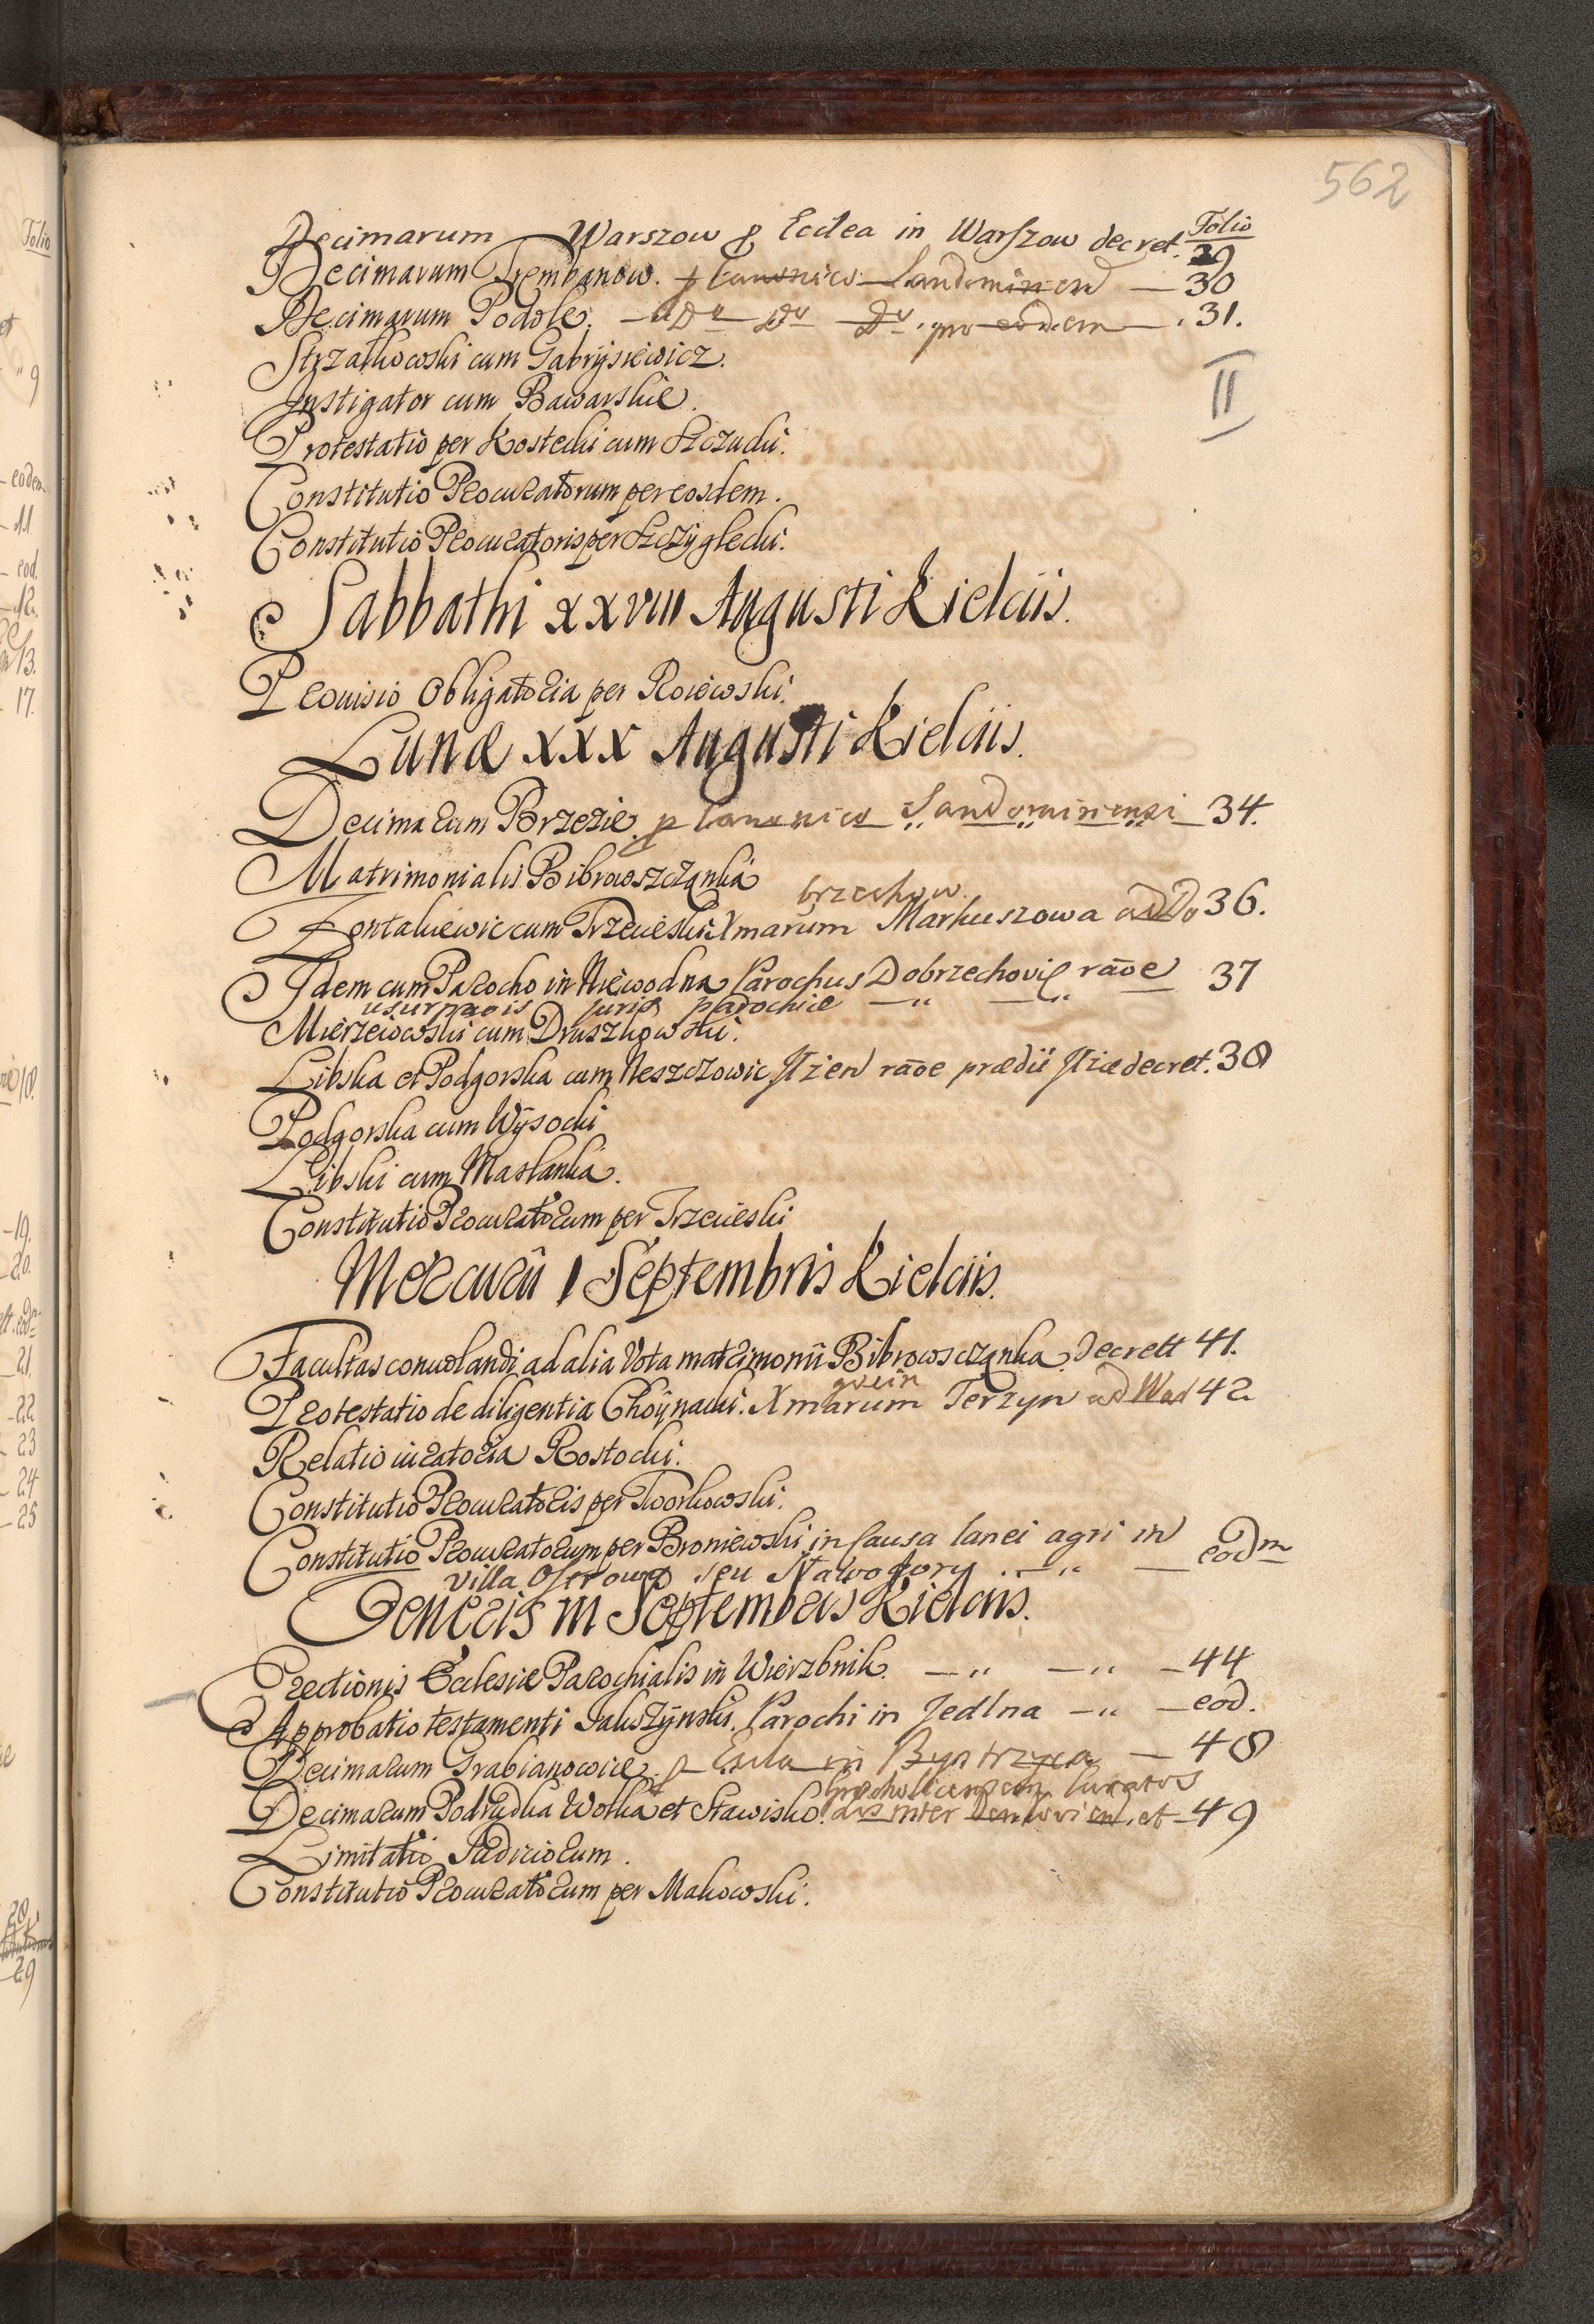 562
Folio
Decimarum Warszow p Ecclea in Warszow decret. 29
Decimarum Trembanow. p Canonico Sandomirien — 30
Decimarum Podole. — Do Do pro eodem — 31.
II
Strzałkowski cum Gabrysiewicz.
Instigator cum Bawarskie.
Protestatio per Kostecki cum Szczucki.
Constitutio Procuratorum per eosdem.
Constitutio Procuratoris per Szczyglecki.
Sabbathi xxviii Augusti Kielciis.
Provisio Obligatoria per Roiewski.
Lunæ xxx Augusti Kielciis.
Decimarum Brzezie. p Canonico Sandomiriensi — 34.
Matrimonialis Bibrowszczanka
brzechow.
Zontakiewic cum Trzecieski Xmarum Markuszowa ad Do 36.
Idem cum Parocho in Niewodna Parochus Dobrzechovien raõe 37
usurpaois juris parochiæ — " — "
Mierzeiowski cum Druszkowski.
Libska et Podgorska cum Neszczowic Ilzen raõe prædii Ilzæ decret. 38
Podgorska cum Wysocki
Libski cum Maslanka.
Constitutio Procuratorum per Trzecieski
Mercurii 1 Septembris Kielciis.
Facultas convolandi ad alia Vota matrimonii Bibrowsczanka. Decrett 41.
Protestatio de diligentia Choynacki. Xmarum Terzyn ad Wad 42
Relatio iuratoria Rostocki.
Constitutio Procuratoris per Tworkowski.
Constitutio Procuratorum per Broniewski in Causa lanei agri in
villa seu — " — eodm
Veneris III Septembris Kielciis.
Erectionis Ecclesiæ Parochialis in Wierzbnik. — " — " — 44
Approbatio testamenti Jakszynski. Parochi in Jedlna — " — eod.
Decimarum Grabianowice. p Eccla in Bystrzyca — 48
Decimarum Podrudka Wolka et Stawisko. lis inter et — 49
Limitatio Judiciorum.
Constitutio Procuratorum per Makowski.